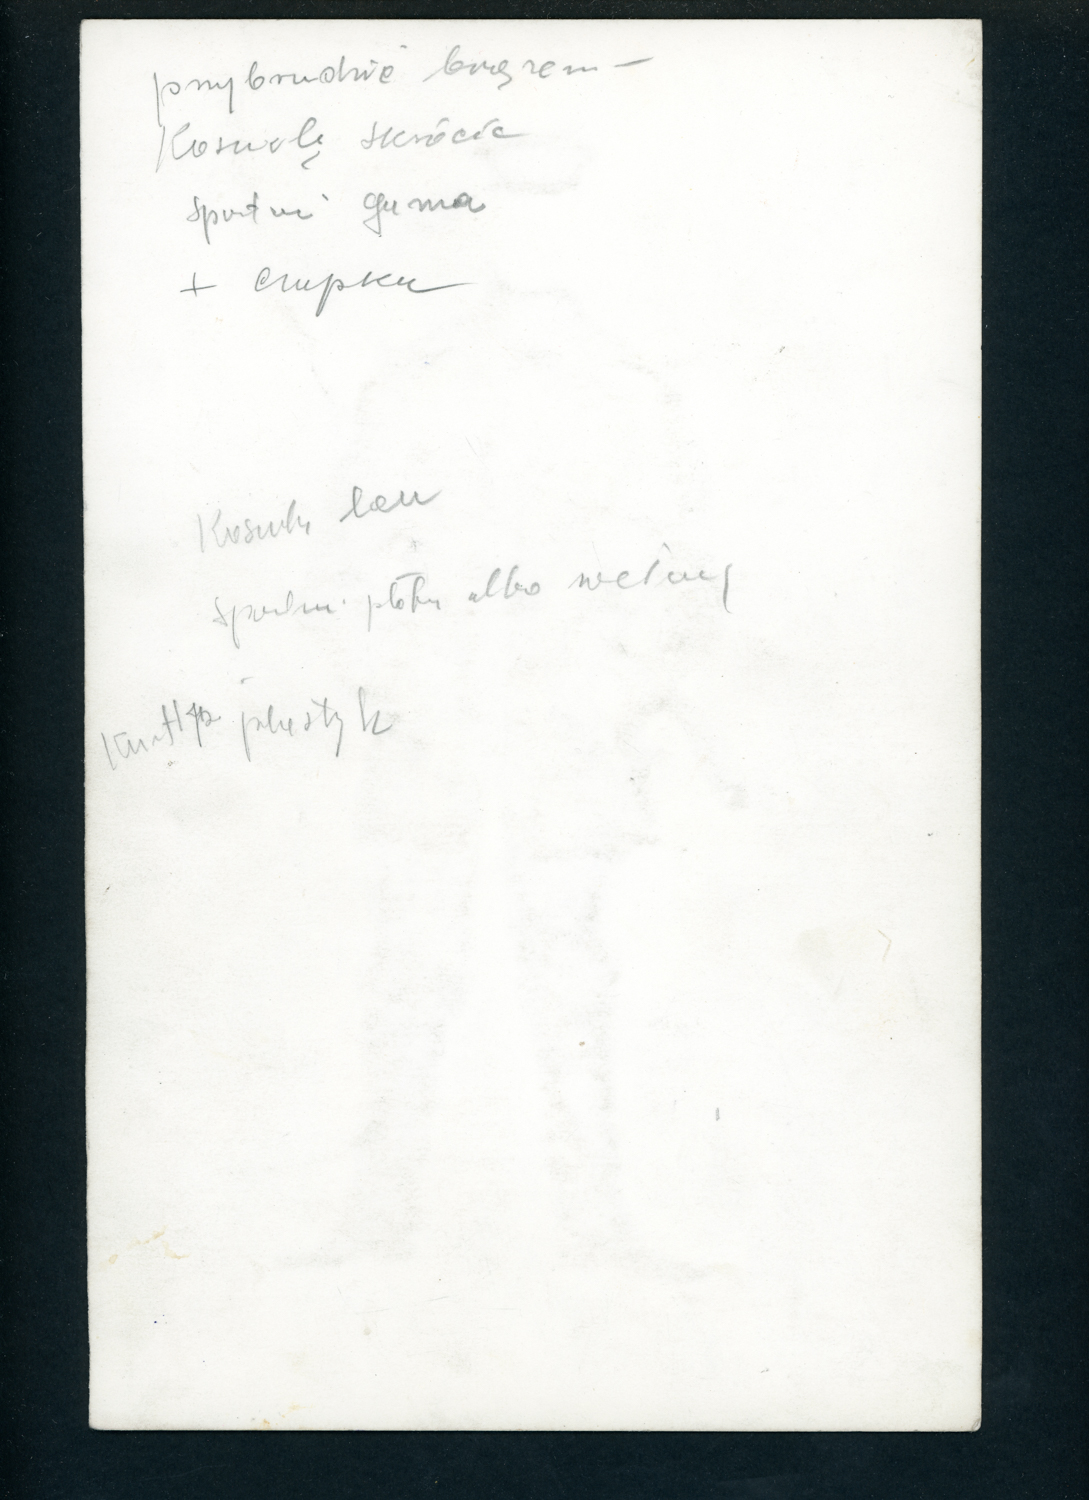 przybrudzić brązem –
Koszulę skrócić
spodnie guma
+ czapka
Koszula len
spodnie płótno albo wełna
plastyk